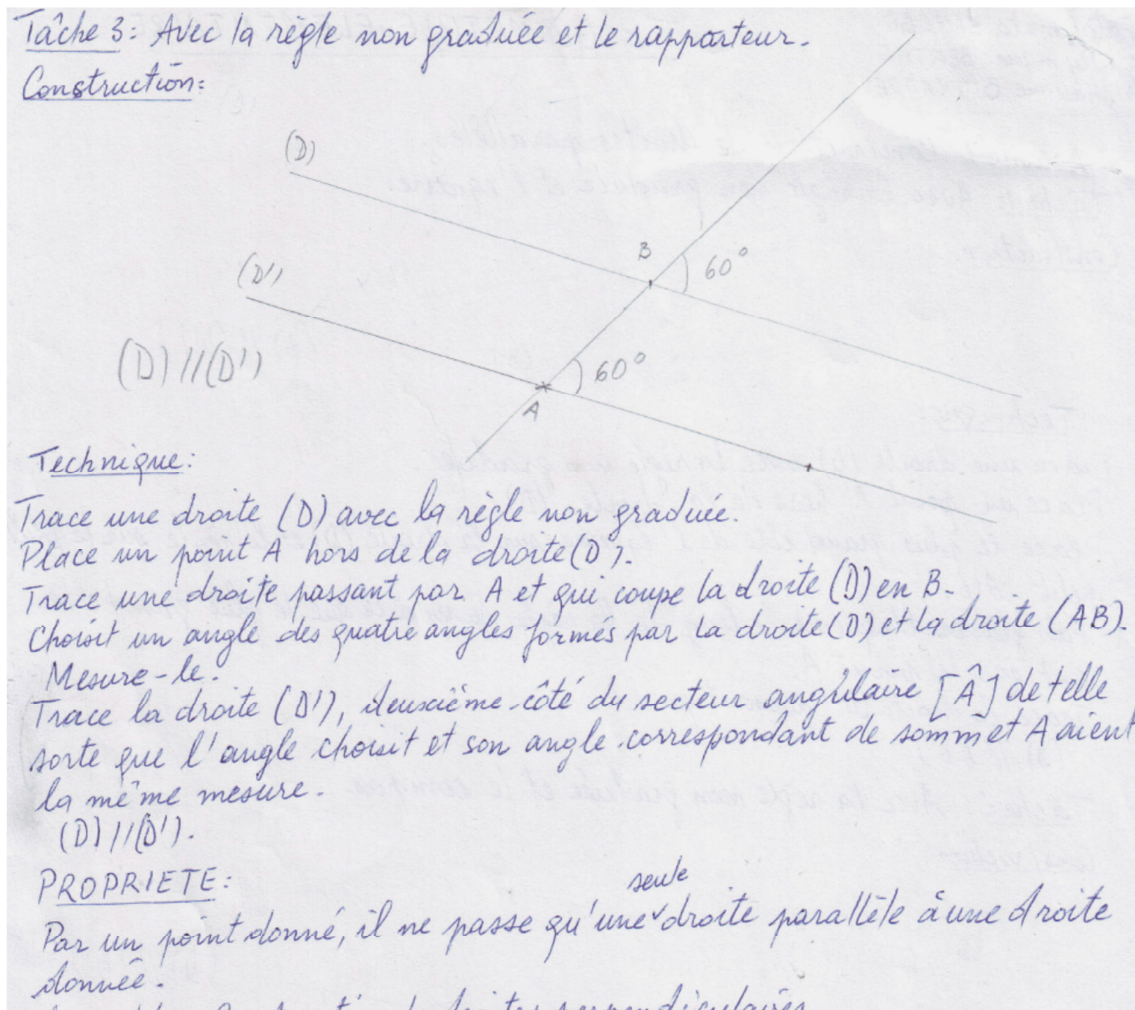 Tâche 3: Avec la règle non graduée et le rapporteur.
Construction:
(D)
B
60°
(D')
(D) // (D')
60°
A
Technique:
Trace une droite (D) avec la règle non graduée.
Place un point A hors de la droite (D).
Trace une droite passant par A et qui coupe la droite (D) en B.
Choisit un angle des quatre angles formés par la droite (D) et la droite (AB).
Mesure-le.
Trace la droite (D'), deuxième côté du secteur angulaire [Â] de telle
sorte que l'angle choisit et son angle correspondant de sommet A aient
la même mesure.
(D) // (D').
PROPRIETE:
seule
Par un point donné, il ne passe qu'une ✓ droite parallèle à une droite
donnée.
droites perpendiculaires